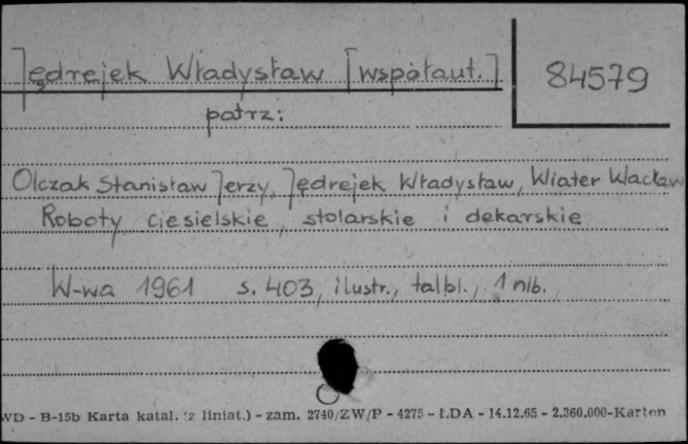 Jędrejek Władysław [współaut.]
84579
patrz:
Olczak Stanisław Jerzy, Jędrejek Władysław, Wiater Wacław
Roboty ciesielskie, stolarskie i dekarskie
W-wa 1961 s. 403, ilustr., talbl., 1 nlb.
WD - B-15b Karta katal. (z liniat.) - zam. 2740/ZW/P - 4275 - ŁDA - 14.12.65 - 2.360.000-Karton